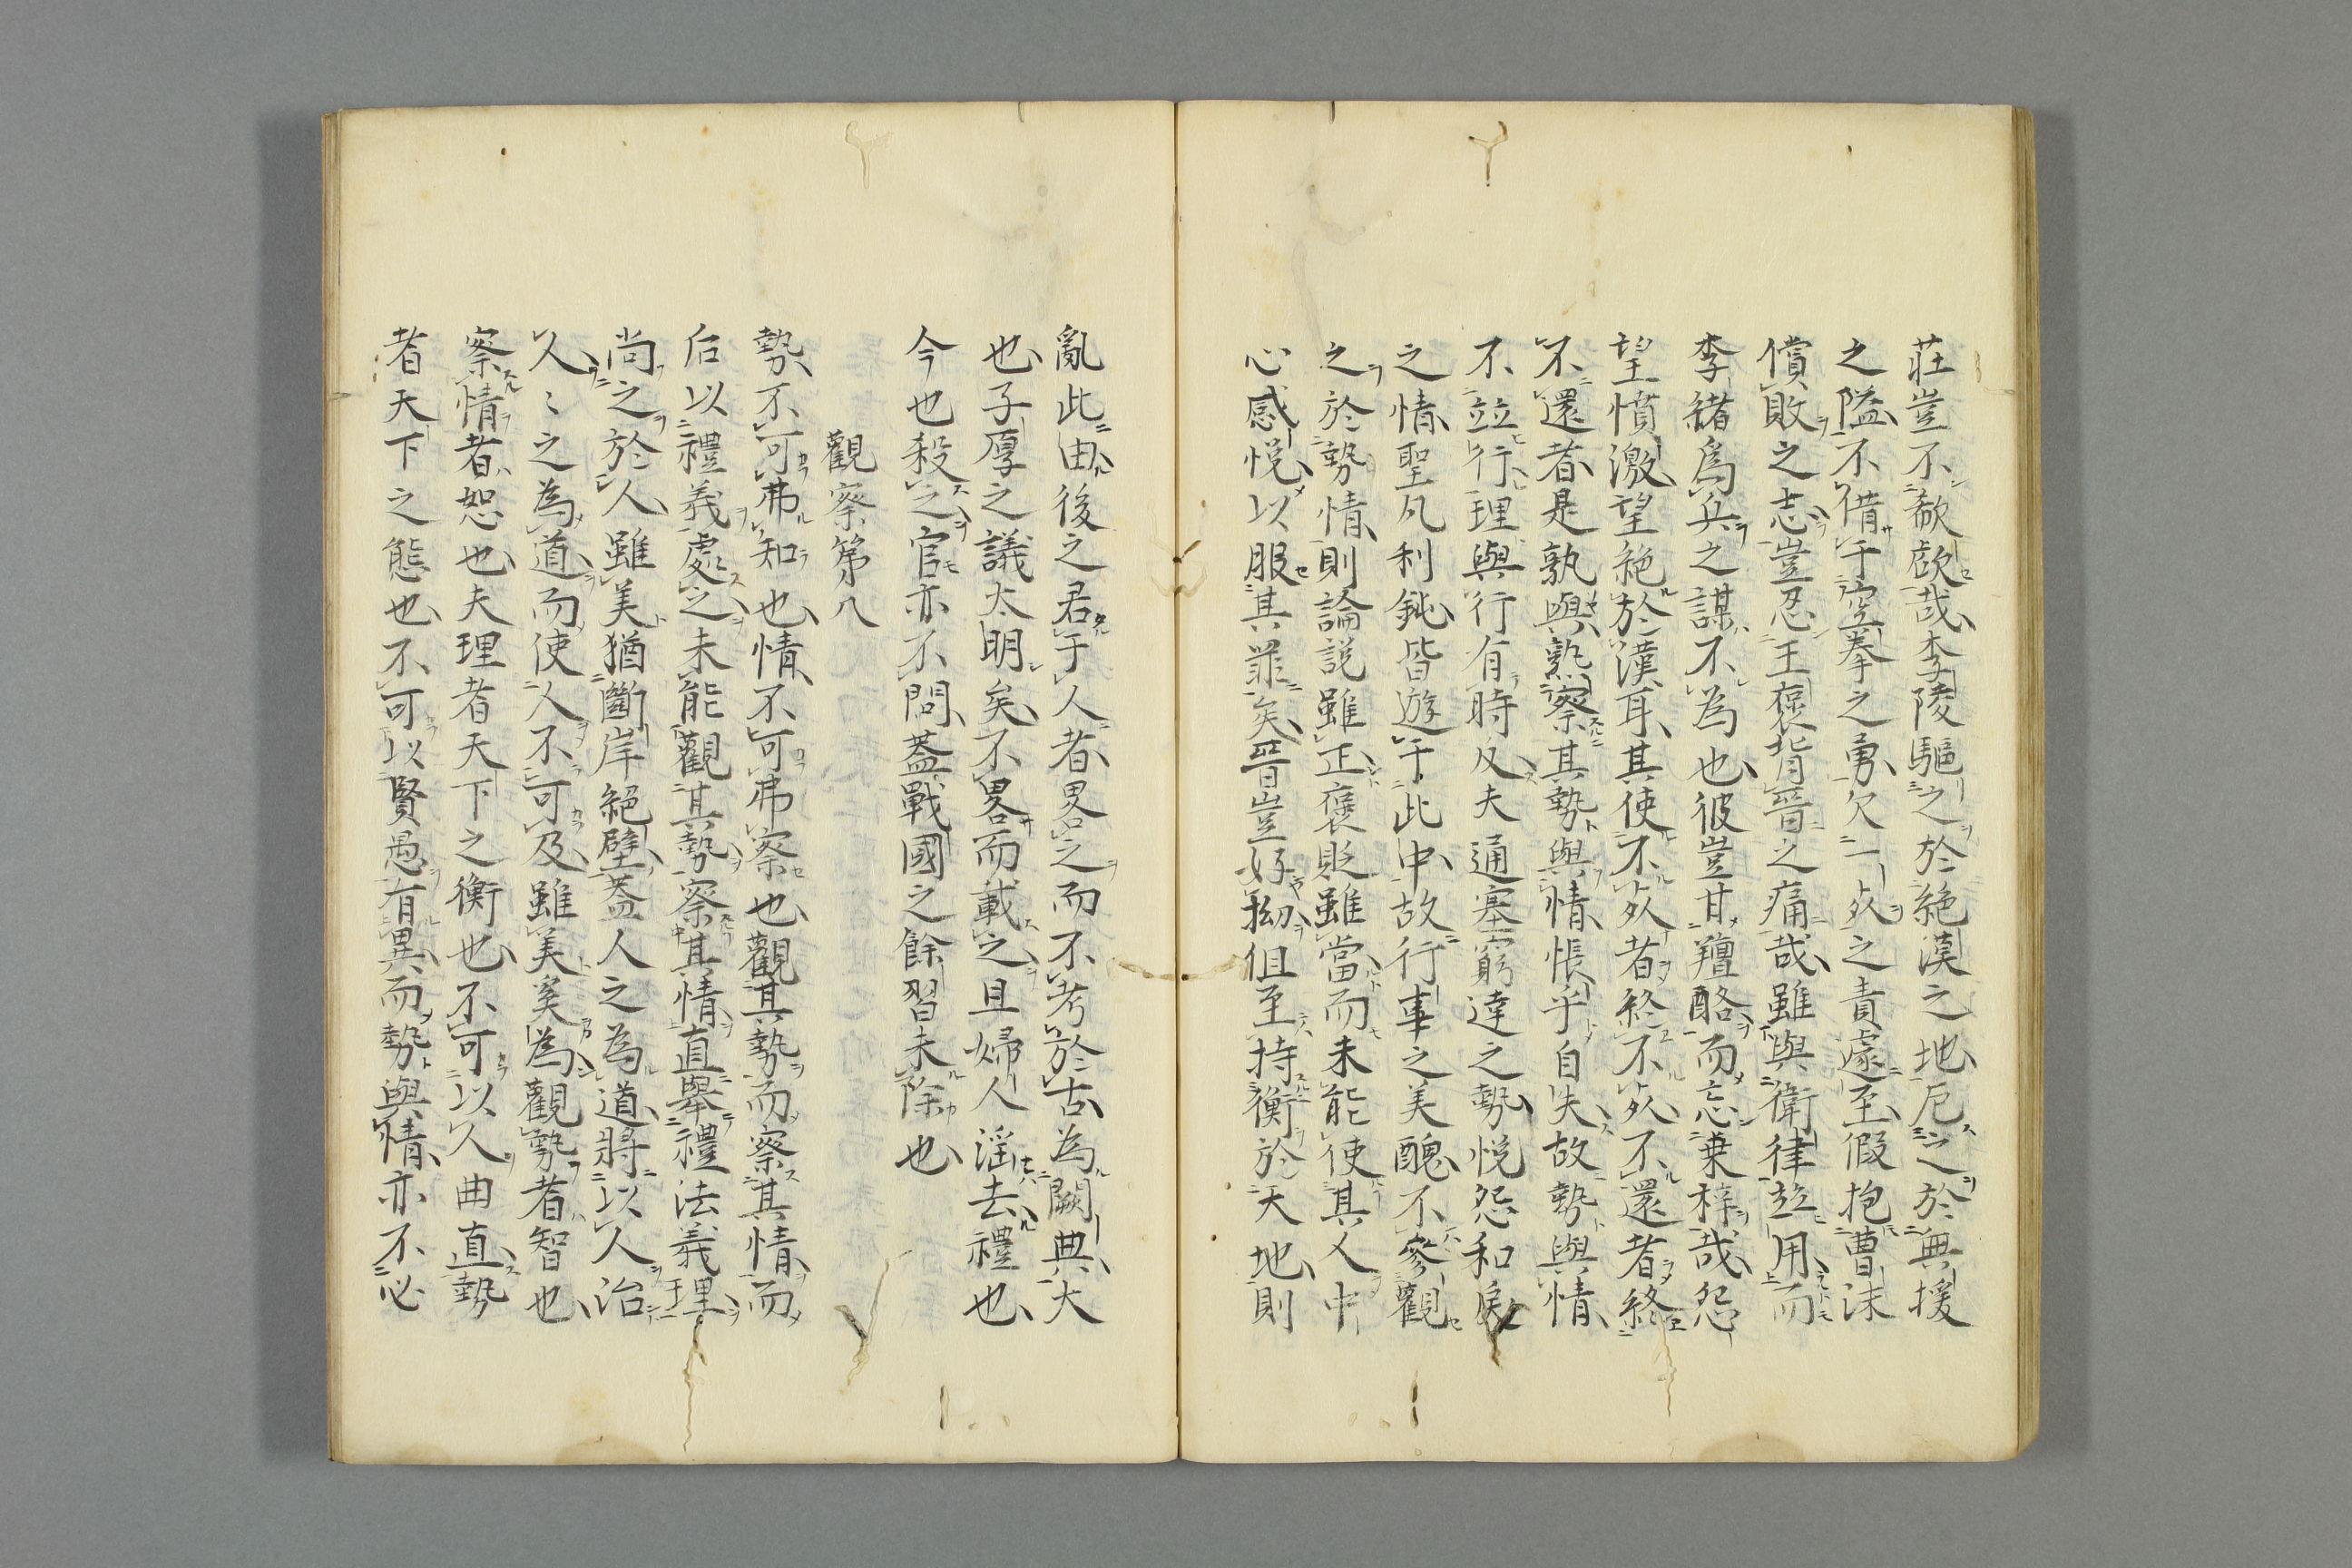 莊豈不歔欷哉李陵驅之於絶漠之地厄之於無援
之隘不借于空拳之勇欠一㱠之責遽至假抱曹沫
償敗之志豈忍王褒背晋之痛哉雖與衛律竝用而
李緒爲兵之謀不為也彼豈甘羶酪而忘桒梓哉怨
望憤激望絶於漢耳其使不㱠者終不㱠不還者終
不還者是孰與熟察其勢與情悵乎自失故勢與情
不竝行理與行有時反夫通塞窮達之勢悦怨和戾
之情聖凡利鈍皆遊于此中故行事之美醜不參觀
之於勢情則論説雖正褒貶雖當而未能使其人中
心感悦以服其罪矣晋豈好拗但至持衡於天地則
亂此由後之君于人者畧之而不考於古為闕典大
也子厚之議太明矣不畧而載之且婦人淫去禮也
今也殺之官亦不問蓋戰國之餘習未除也
觀察第八
勢不可弗知也情不可弗察也觀其勢而察其情而
后以禮義處之未能觀其勢察其情直舉禮法義理
尚之於人雖美猶斷岸絶壁蓋人之為道將以人治
人〻之為道而使人不可及雖美奚為觀勢者智也
察情者恕也夫理者天下之衡也不可以人曲直勢
者天下之態也不可以賢愚有異而勢與情亦不必